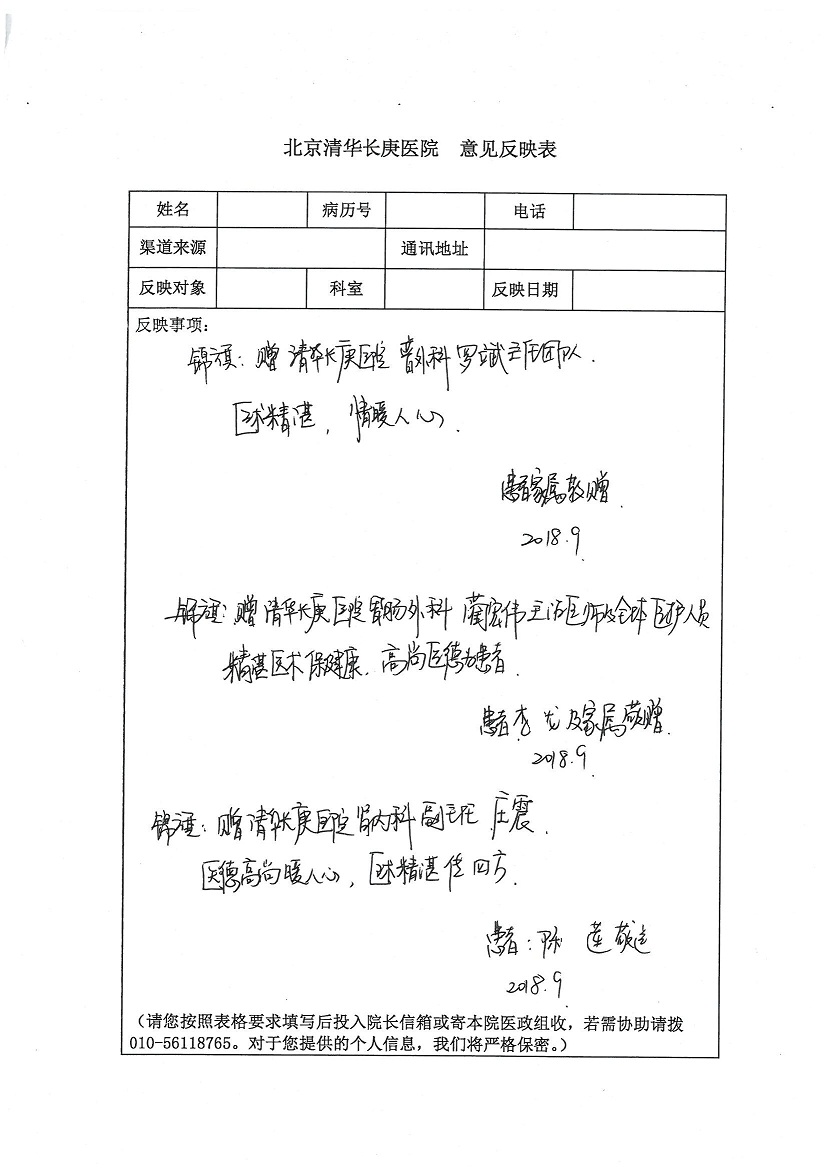 北京清华长庚医院 意见反映表
姓名 病历号 电话
渠道来源 通讯地址
反映对象 科室 反映日期
反映事项：
锦旗：赠清华长庚医院普外科罗斌主任团队.
医术精湛，情暖人心.
患者家属敬赠.
2018.9.
锦旗：赠清华长庚医院胃肠外科 蔺宏伟主治医师及全体医护人员
精湛医术保健康.高尚医德为患者.
患者李 龙及家属敬赠.
2018.9.
锦旗：赠清华长庚医院肾内科副主任 庄震.
医德高尚暖人心，医术精湛传四方.
患者：陈 莲敬送
2018.9.
（请您按照表格要求填写后投入院长信箱或寄本院医政组收，若需协助请拨
010-56118765。对于您提供的个人信息，我们将严格保密。）